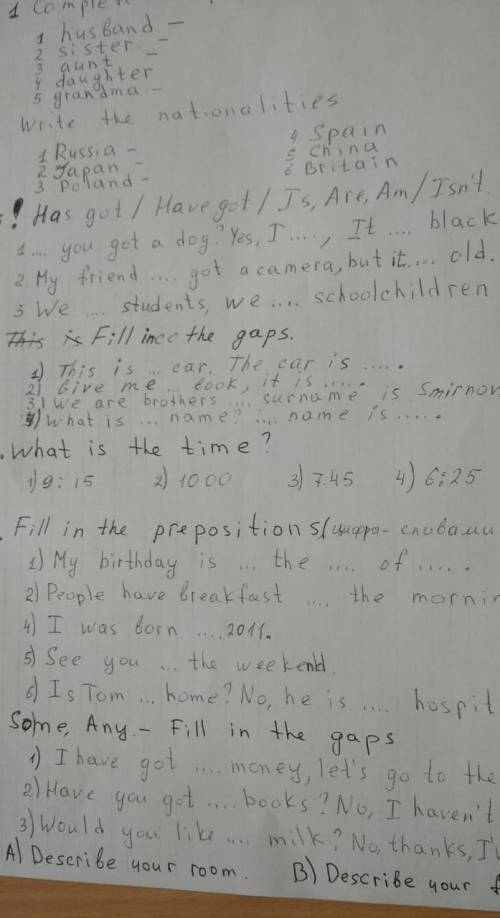 1 Comple
1 husband –
2 sister –
3 aunt –
4 daughter
5 grandma –
Write the nationalities
1 Russia –
2 Japan –
3 Poland –
4 Spain
5 China
6 Britain
! Has got / Have got / Is, Are, Am / Isn't
1 .... you got a dog? Yes, I ...., It .... black
2. My friend .... got a camera, but it .... old.
3 We .... students, we .... schoolchildren
This is Fill in the gaps.
1) This is ... car. The car is .....
2) Give me ... book, it is .....
3) We are brothers .... surname is Smirnov
4) What is ... name? .... name is .....
. What is the time?
1) 9:15 2) 10 00 3) 7.45 4) 6:25
. Fill in the prepositions (цифра - словами
1) My birthday is ... the .... of .....
2) People have breakfast .... the mornin
4) I was born .... 2011.
5) See you ... the weekend.
6) Is Tom ... home? No, he is .... hospit
Some, Any – Fill in the gaps
1) I have got .... money, let's go to the
2) Have you got .... books? No, I haven't
3) Would you like .... milk? No, thanks, I'
A) Describe your room. B) Describe your f